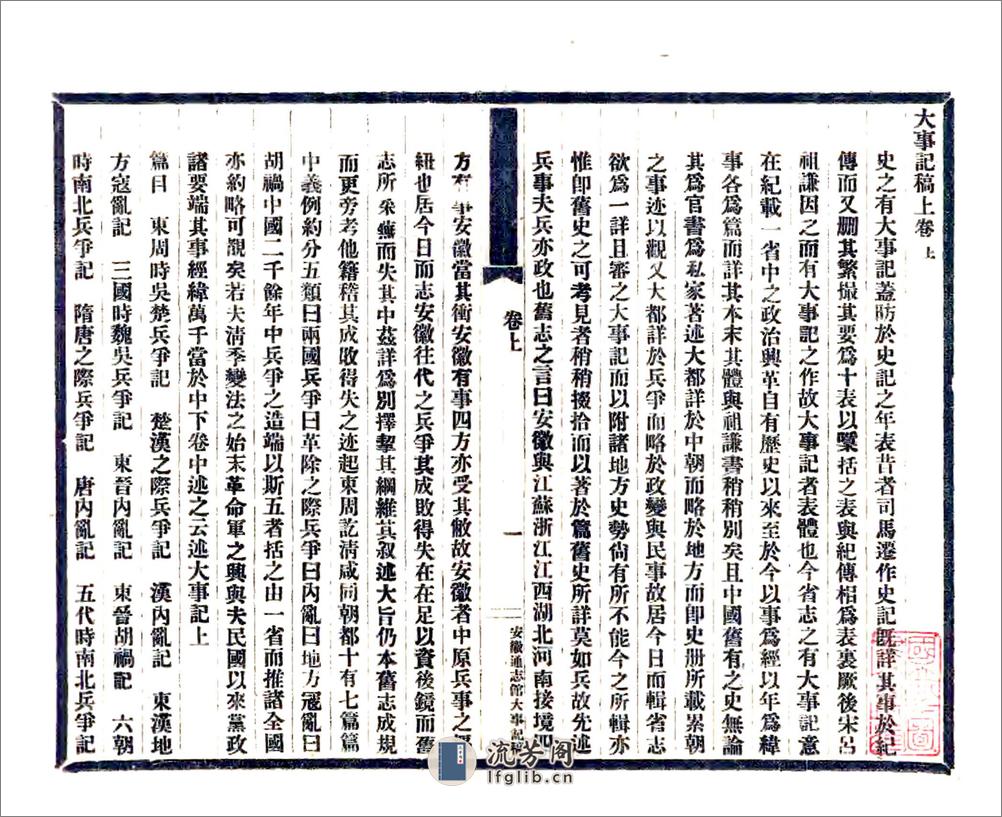 大事記稿上卷 上
史之有大事記蓋昉於史記之年表昔者司馬遷作史記既詳其事於紀
傳而又刪其繁撮其要爲十表以檃括之表與紀傳相爲表裏厥後宋呂
祖謙因之而有大事記之作故大事記者表體也今省志之有大事記意
在紀載一省中之政治興革自有歷史以來至於今以事爲經以年爲緯
事各爲篇而詳其本末其體與祖謙書稍稍別矣且中國舊有之史無論
其爲官書爲私家著述大都詳於中朝而略於地方而即史册所載累朝
之事迹以觀又大都詳於兵爭而略於政變與民事故居今日而輯省志
欲爲一詳且審之大事記而以附諸地方史勢尙有所不能今之所輯亦
惟即舊史之可考見者稍稍掇拾而以著於篇舊史所詳莫如兵故先述
兵事夫兵亦政也舊志之言曰安徽與江蘇浙江江西湖北河南接境四
卷上
一
安徽通志館大事記稿
方有事安徽當其衝安徽有事四方亦受其敝故安徽者中原兵事之樞
紐也居今日而志安徽往代之兵爭其成敗得失在在足以資後鏡而舊
志所采蕪而失其中茲詳爲別擇挈其綱維其叙述大旨仍本舊志成規
而更旁考他籍稽其成敗得失之迹起東周訖淸咸同朝都十有七篇篇
中義例約分五類曰兩國兵爭曰革除之際兵爭曰內亂曰地方寇亂曰
胡禍中國二千餘年中兵爭之造端以斯五者括之由一省而推諸全國
亦約略可覩矣若夫淸季變法之始末革命軍之興與夫民國以來黨政
諸要端其事經緯萬千當於中下卷中述之云述大事記上
篇目 東周時吳楚兵爭記 楚漢之際兵爭記 漢內亂記 東漢地
方寇亂記 三國時魏吳兵爭記 東晉內亂記 東晉胡禍記 六朝
時南北兵爭記 隋唐之際兵爭記 唐內亂記 五代時南北兵爭記
流芳阁
lfglib.cn